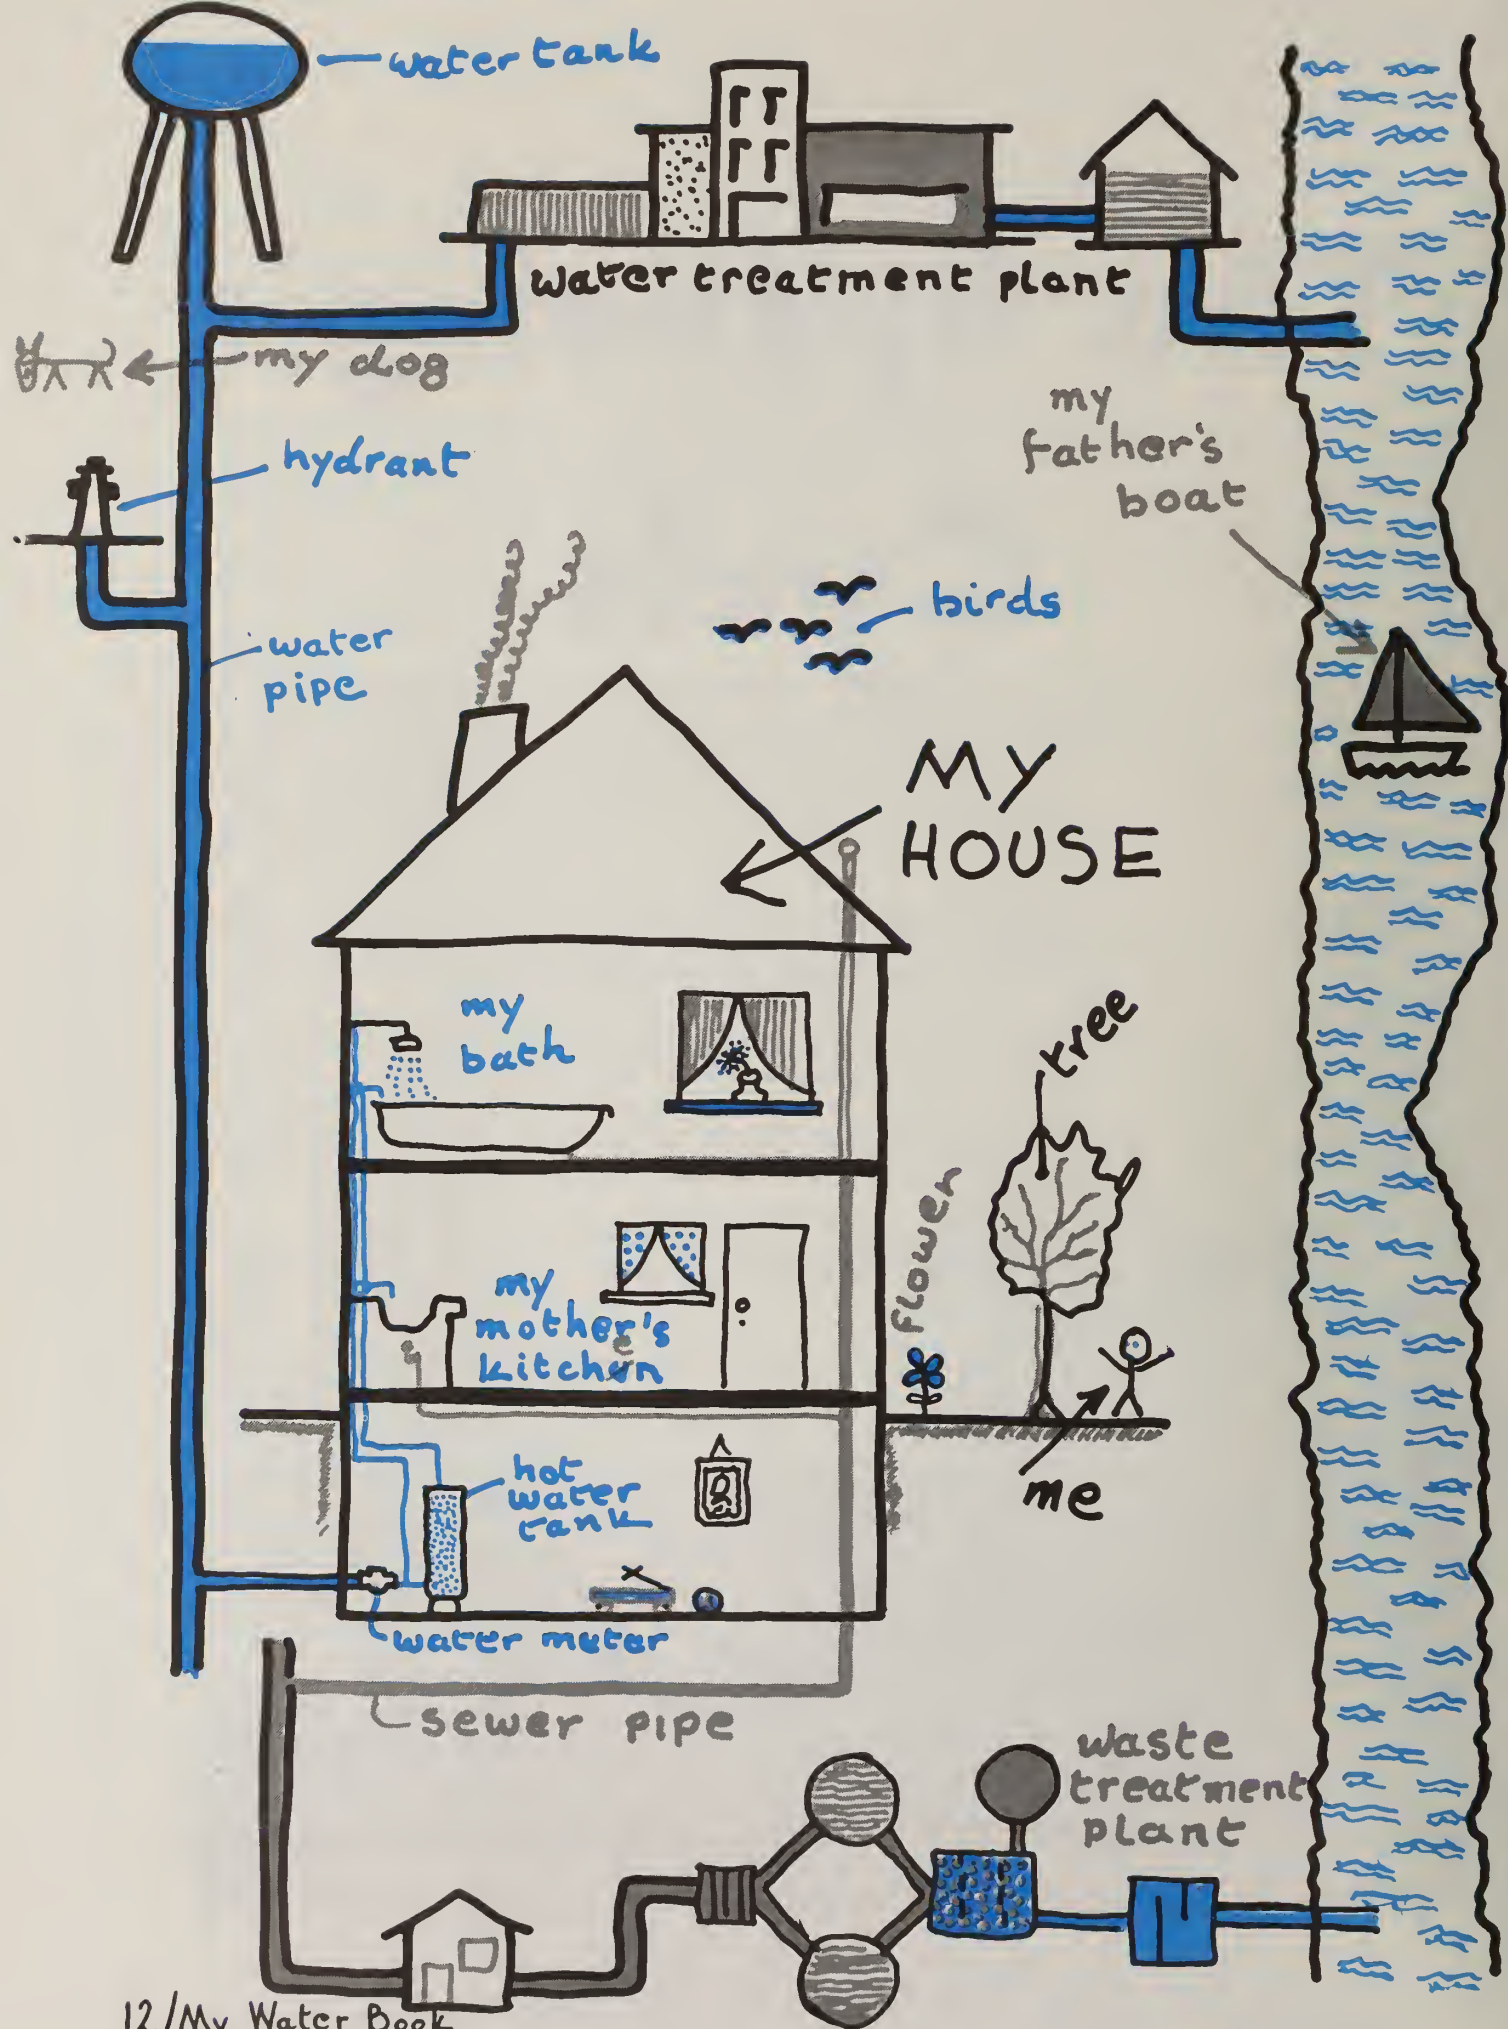 water tank
water treatment plant
my dog
hydrant
my
father's
boat
birds
water
pipe
MY
HOUSE
my
bath
tree
flower
my
mother's
kitchen
me
hot
water
tank
water meter
sewer pipe
waste
treatment
plant
12/My Water Book